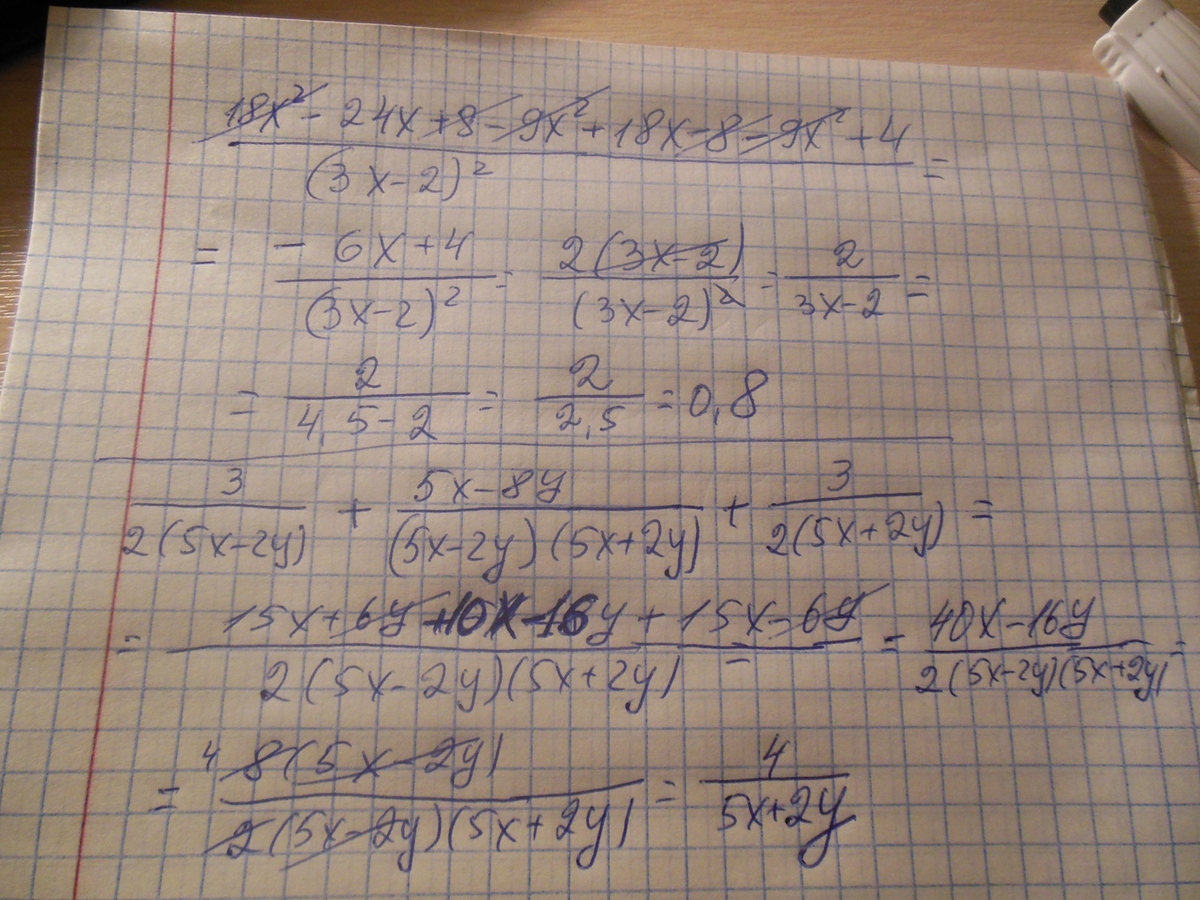 (18x² - 24x + 8 - 9x² + 18x - 8 - 9x² + 4)/(3x-2)² =
= (-6x+4)/(3x-2)² = 2(3x-2)/(3x-2)² = 2/(3x-2) =
= 2/(4,5-2) = 2/2,5 = 0,8
3/(2(5x-2y)) + (5x-8y)/((5x-2y)(5x+2y)) + 3/(2(5x+2y)) =
= (15x+6y+10x-16y+15x-6y)/(2(5x-2y)(5x+2y)) = (40x-16y)/(2(5x-2y)(5x+2y)) =
= 4 8(5x-2y)/(2(5x-2y)(5x+2y)) = 4/(5x+2y)